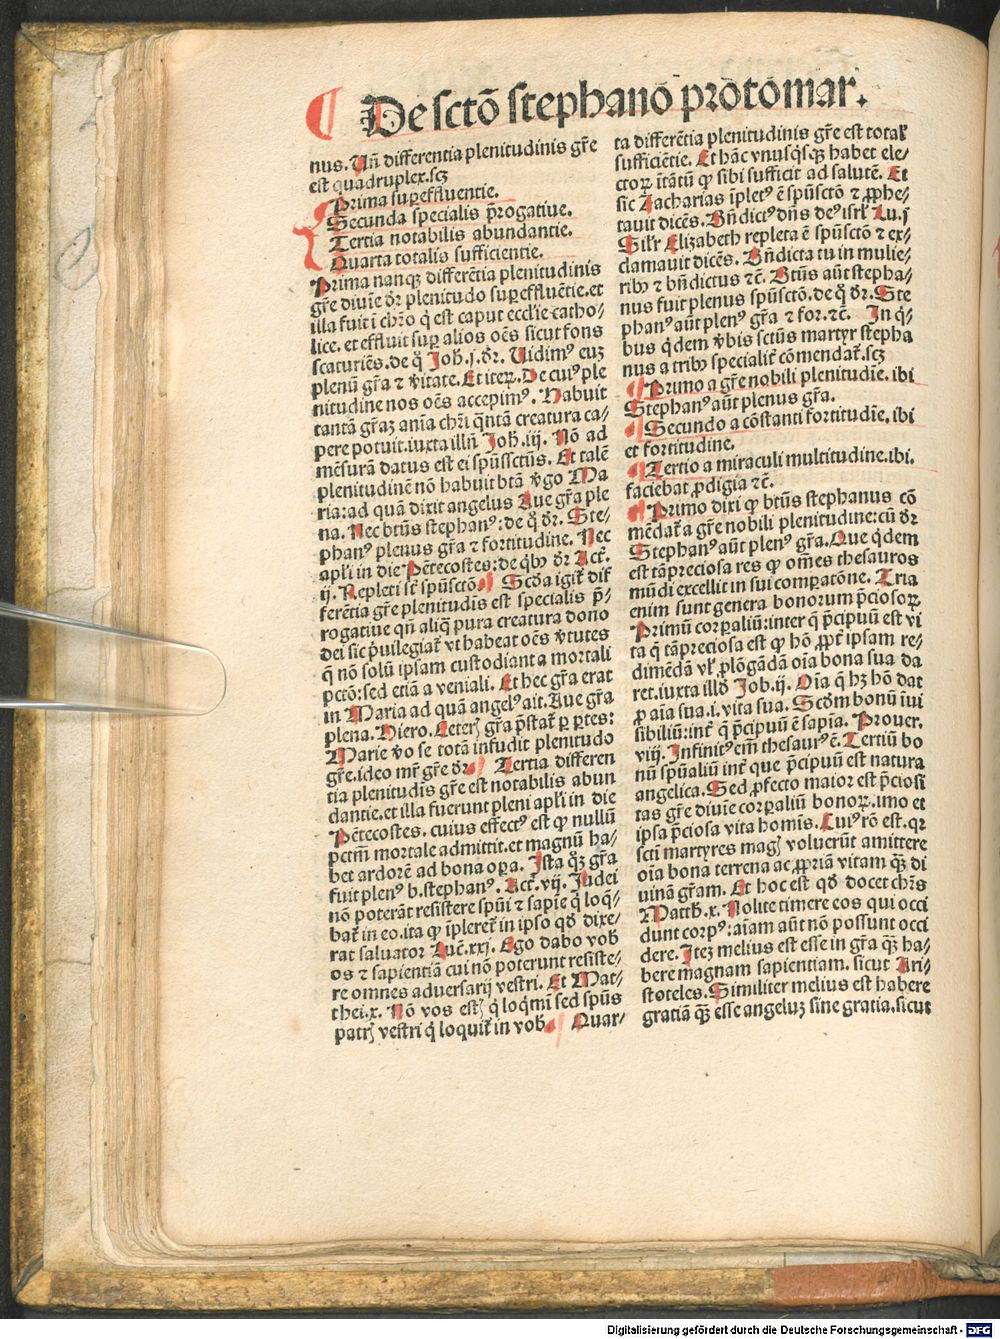 De sctō stephanō prōtōmar.
nus. Uñ differentia plenitudinis gr̄e
est quadruplex. scꝫ
Prima suꝑeffluentie.
Secunda specialis p̄rogatiue.
Tertia notabilis abundantie.
Quarta totalis sufficientie.
Prima nanqꝫ differētia plenitudinis
gr̄e diuīe dr̄ plenitudo suꝑeffluētie. et
illa fuit ī chr̄o q̇ est caput eccl̄ie catho⸗
lice. et effluit suꝑ alios oēs sicut fons
scaturiēs. de q̊ Joh̄. j. dr̄. Uidimꝰ euꝫ
plenū gr̄a ⁊ v̄itate. Et iteꝝ. De cuiꝰ ple
nitudine nos oēs accepimꝰ. Habuit
tantā gr̄aꝫ anīa chr̄i q̄ntā creatura ca⸗
pere potuit. iuxta illū Joh̄. iij. Nō ad
mēsurā datus est ei spūssctūs. Et talē
plenitudinē nō habuit btā v̄go Ma
ria: ad quā dixit angelus Aue gr̄a ple
na. Nec btūs stephanꝰ: de q̊ dr̄. Ste⸗
phanꝰ plenus gr̄a ⁊ fortitudine. Nec
apl̄i in die Pētecostes: de qḃꝫ dr̄ Act̄.
ij. Repleti st̄ spūsctō. Scd̄a igit̄ dif
ferētia gr̄e plenitudīs est specialis p̄⸗
rogatiue qn̄ aliq̄ pura creatura dono
dei sic p̄uilegiat̄ vt habeat oēs v̄tutes
q̄ nō solū ipsam custodiant a mortali
pctō: sed etiā a veniali. Et hec gr̄a erat
in Maria ad quā angelꝰ ait. Aue gr̄a
plena. Hiero. Ceterꝭ gr̄a p̄stat̄ ꝑ ꝑtes:
Marie v̄o se totā infudit plenitudo
gr̄e. ideo mr̄ gr̄e dr̄. Tertia differen
tia plenitudīs gr̄e est notabilis abun
dantie. et illa fuerunt pleni apl̄i in die
Pētecostes. cuius effectꝰ est ꝙ nullū
pctm̄ mortale admittit. et magnū ha⸗
bet ardorē ad bona oꝑa. Ista q̊ꝫ gr̄a
fuit plenꝰ b. stephanꝰ. Act̄. vij. Judei
nō poterāt resistere spūi ⁊ sapīe q̇ loq̄⸗
bat̄ in eo. ita ꝙ īpleret̄ in ipso qd̄ dixe⸗
rat saluator Luc̄. xxj. Ego dabo vob
os ⁊ sapientiā cui nō poterunt resiste⸗
re omnes aduersarij vestri. Et Mat⸗
thei. x. Nō vos estꝭ q̇ loq̇mī sed spūs
patrꝭ vestri q̇ loquit̄ in vob. Quar⸗
ta differētia plenitudinis gr̄e est total̄
sufficiētie. Et hāc vnusq̇sqꝫ habet ele⸗
ctoꝝ ītātū ꝙ sibi sufficit ad salutē. Et
sic Zacharias īpletꝰ ē spūsctō ⁊ ꝓphe⸗
tauit dicēs. Bn̄dictꝰ dn̄s deꝰ isrl̄ Lu. j
Sil̄r Elizabeth repleta ē spūsctō ⁊ ex⸗
clamauit dicēs. Bn̄dicta tu in mulie⸗
ribꝫ ⁊ bn̄dictus ⁊c̄. Btūs aūt stepha⸗
nus fuit plenus spūsctō. de q̊ dr̄. Ste
phanꝰ aūt plenꝰ gr̄a ⁊ for. ⁊c̄. In q̇⸗
bus q̇dem v̄bis sctūs martyr stepha
nus a tribꝫ specialit̄ cōmendat̄. scꝫ
Primo a gr̄e nobili plenitudīe. ibi
Stephanꝰ aūt plenus gr̄a.
Secundo a cōstanti fortitudīe. ibi
et fortitudine.
Tertio a miraculi multitudine. ibi.
faciebat ꝓdigia ⁊c̄.
Primo dixi ꝙ btūs stephanus cō
mēdat̄ a gr̄e nobili plenitudine: cū dr̄
Stephanꝰ aūt plenꝰ gr̄a. Que q̇dem
est tāpreciosa res ꝙ om̄es thesauros
mūdi excellit in sui compatōne. Tria
enim sunt genera bonorum p̄ciosoꝝ.
Primū corꝑaliū: inter q̄ p̄cipuū est vi
ta q̄ tāpreciosa est ꝙ hō ꝓpt̄ ipsam re⸗
dimēdam vl̓ ꝓlōgādā oīa bona sua da
ret. iuxta illd̄ Job. ij. Oīa q̄ hꝫ hō dat
ꝓ aīa sua. i. vita sua. Scd̄m bonū īui
sibiliū: int̄ q̄ p̄cipuū ē sapīa. Prouer.
viij. Infinitꝰ em̄ thesaurꝰ ē. Tertiū bo
nū spūaliū int̄ que p̄cipuū est natura
angelica. Sed ꝓfecto maior est p̄ciosi
tas gr̄e diuīe corꝑaliū bonoꝝ. imo et
ipsa p̄ciosa vita homīs. Cuiꝰ rō est. qꝛ
scti martyres magꝭ voluerūt amittere
oīa bona terrena ac ꝓpriā vitam qꝫ di
uinā gr̄am. Et hoc est qd̄ docet chr̄s
Matth̄. x. Nolite timere eos qui occi
dunt corpꝰ: aīam aūt nō possunt occi
dere. Iteꝫ melius est esse in gr̄a qꝫ ha⸗
bere magnam sapientiam. sicut Ari⸗
stoteles. Similiter melius est habere
gratiā qꝫ esse angeluꝫ sine gratia. sicut
Digitalisierung gefördert durch die Deutsche Forschungsgemeinschaft - DFG